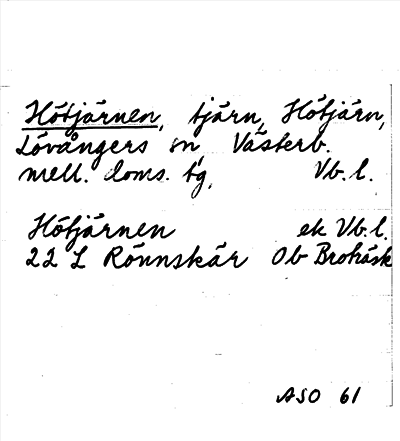 Hötjärnen, tjärn, Hötjärn,
Lövångers sn, Västerb.
mell. doms. tg, Vb. l.
Hötjärnen ek Vb. l.
22 L Rönnskär Ob Broträsk
ASO 61